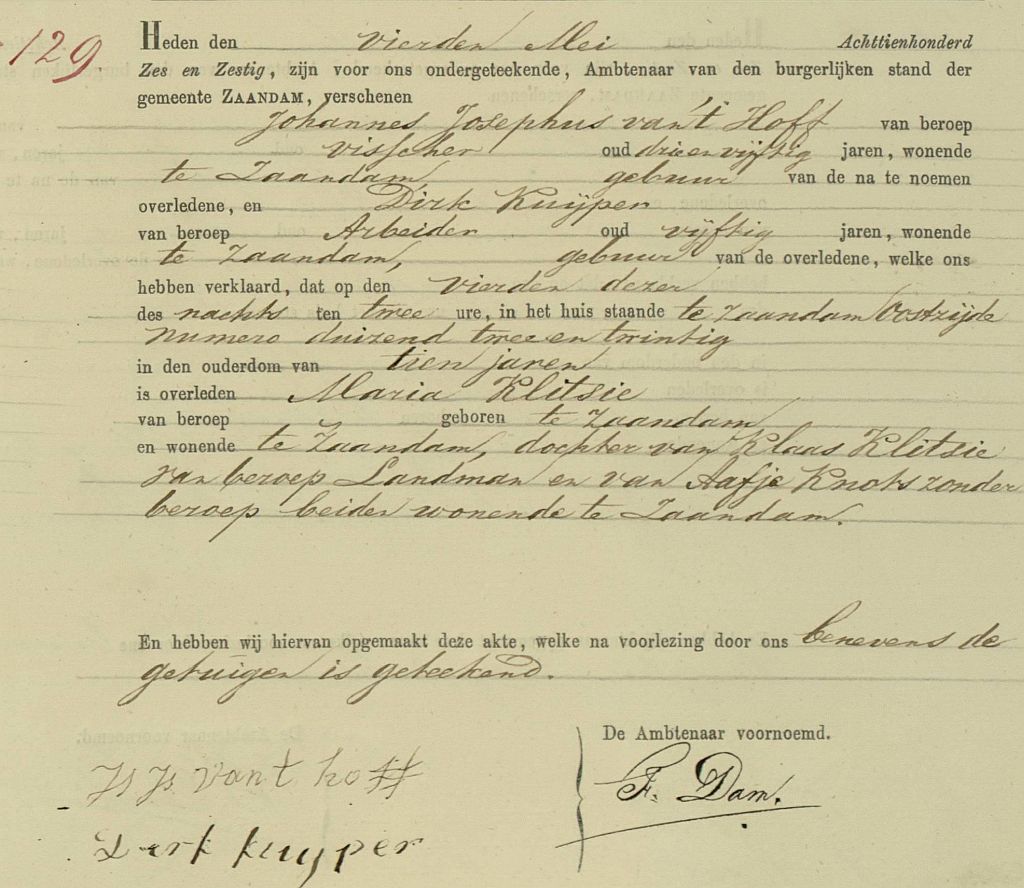 129
Heden den vierden Mei Achttienhonderd
Zes en Zestig, zijn voor ons ondergeteekende, Ambtenaar van den burgerlijken stand der
gemeente ZAANDAM, verschenen
Johannes Josephus van't Hoff van beroep
visscher oud drie en vijftig jaren, wonende
te Zaandam gebuur van de na te noemen
overledene, en Dirk Kuijper
van beroep Arbeider oud vijftig jaren, wonende
te Zaandam, gebuur van de overledene, welke ons
hebben verklaard, dat op den vierden dezer
des nachts ten twee ure, in het huis staande te Zaandam Oostzijde
numero duizend twee en twintig
in den ouderdom van tien jaren
is overleden Maria Klitsie
van beroep geboren te Zaandam
en wonende te Zaandam, dochter van Klaas Klitsie
van beroep Landman en van Aafje Knots zonder
beroep beiden wonende te Zaandam.
En hebben wij hiervan opgemaakt deze akte, welke na voorlezing door ons benevens de
getuigen is geteekend.
De Ambtenaar voornoemd.
van t hoff
F. Dam.
Dirk kuyper